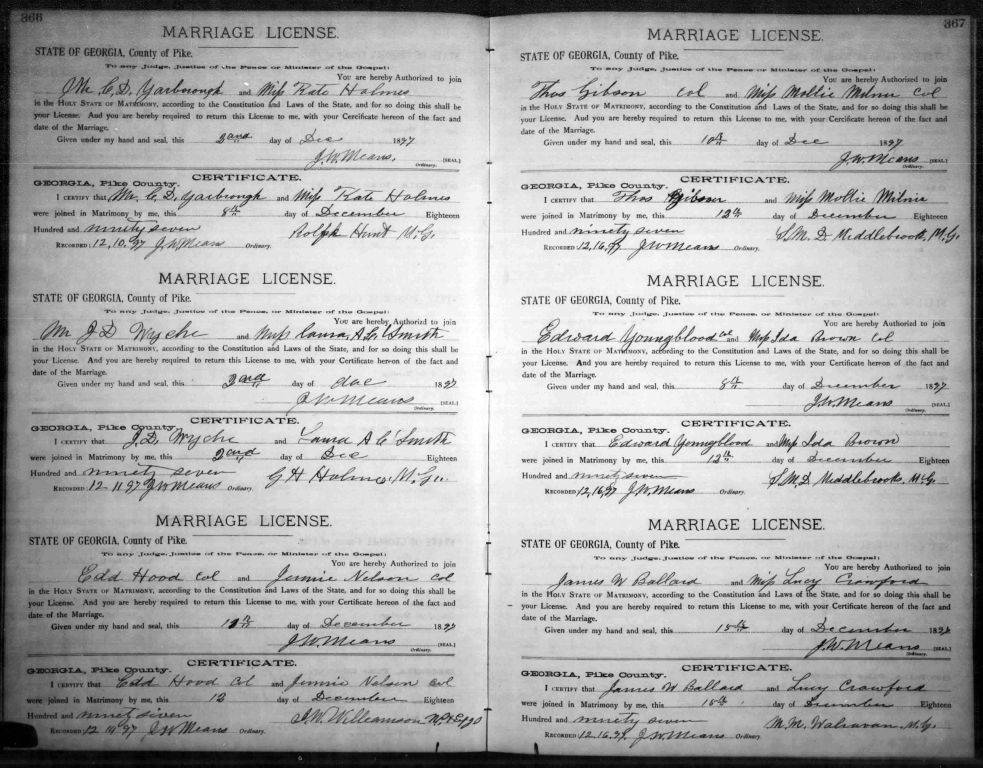 366
MARRIAGE LICENSE.
STATE OF GEORGIA, County of Pike.
To any Judge, Justice of the Peace or Minister of the Gospel:
You are hereby Authorized to join
Mr C. D. Yarborough and Miss Kate Holmes
in the HOLY STATE OF MATRIMONY, according to the Constitution and Laws of the State, and for so doing this shall be
your License. And you are hereby required to return this License to me, with your Certificate hereon of the fact and
date of the Marriage.
Given under my hand and seal, this 2nd day of Dec 1897
J.W. Means, [SEAL]
Ordinary.
CERTIFICATE.
GEORGIA, Pike County.
I CERTIFY that Mr. C. D. Yarbrough and Miss Kate Holmes
were joined in Matrimony by me, this 8th day of December Eighteen
Hundred and ninety seven Rolph Hunt M.G.
RECORDED 12,10,97 J W Means Ordinary.
MARRIAGE LICENSE.
STATE OF GEORGIA, County of Pike.
To any Judge, Justice of the Peace, or Minister of the Gospel:
You are hereby Authorized to join
Mr J D Wyche and Miss Laura A Smith
in the HOLY STATE OF MATRIMONY, according to the Constitution and Laws of the State, and for so doing this shall be
your License. And you are hereby required to return this License to me, with your Certificate hereon of the fact and
date of the Marriage.
Given under my hand and seal, this day of 1897
J W Means [SEAL]
Ordinary.
CERTIFICATE.
GEORGIA, Pike County.
I CERTIFY that J. D. Wyche and Laura A C Smith
were joined in Matrimony by me, this day of Dec Eighteen
Hundred and ninety seven G H Holmes M.G.
RECORDED 12 11 97 J W Means Ordinary.
MARRIAGE LICENSE.
STATE OF GEORGIA, County of Pike.
To any Judge, Justice of the Peace, or Minister of the Gospel:
You are hereby Authorized to join
Edd Hood Col and Jennie Nelson Col
in the HOLY STATE OF MATRIMONY, according to the Constitution and Laws of the State, and for so doing this shall be
your License. And you are hereby required to return this License to me, with your Certificate hereon of the fact and
date of the Marriage.
Given under my hand and seal, this day of December 1897
J.W. Means [SEAL]
Ordinary.
CERTIFICATE.
GEORGIA, Pike County.
I CERTIFY that Edd Hood Col and Jennie Nelson Col
were joined in Matrimony by me, this 12 day of December Eighteen
Hundred and Williamson
RECORDED 12 97 J W Means Ordinary.
367
MARRIAGE LICENSE.
STATE OF GEORGIA, County of Pike.
To any Judge, Justice of the Peace or Minister of the Gospel:
You are hereby Authorized to join
Thos Gibson Col and Miss Mollie Milner Col
in the HOLY STATE OF MATRIMONY, according to the Constitution and Laws of the State, and for so doing this shall be
your License. And you are hereby required to return this License to me, with your Certificate hereon of the fact and
date of the Marriage.
Given under my hand and seal, this 10th day of Dec 1897
J.W. Means [SEAL]
Ordinary.
CERTIFICATE.
GEORGIA, Pike County.
I CERTIFY that Thos Gibson and Miss Mollie Milner
were joined in Matrimony by me, this 12th day of December Eighteen
Hundred and ninety seven S. M. D. Middlebrook, M.G.
RECORDED 12,16,97 J W Means Ordinary.
MARRIAGE LICENSE.
STATE OF GEORGIA, County of Pike.
To any Judge, Justice of the Peace, or Minister of the Gospel:
You are hereby Authorized to join
Edward Youngblood Col and Miss Ida Brown Col
in the HOLY STATE OF MATRIMONY, according to the Constitution and Laws of the State, and for so doing this shall be
your License. And you are hereby required to return this License to me, with your Certificate hereon of the fact and
date of the Marriage.
Given under my hand and seal, this 8th day of December 1897
J.W. Means [SEAL]
Ordinary.
CERTIFICATE.
GEORGIA, Pike County.
I CERTIFY that Edward Youngblood and Miss Ida Brown
were joined in Matrimony by me, this 12th day of December Eighteen
Hundred and ninety seven S. M. D. Middlebrooks, M.G.
RECORDED 12,16,97 J. W. Means Ordinary.
MARRIAGE LICENSE.
STATE OF GEORGIA, County of Pike.
To any Judge, Justice of the Peace, or Minister of the Gospel:
You are hereby Authorized to join
James W Ballard and Miss Lucy Crawford
in the HOLY STATE OF MATRIMONY, according to the Constitution and Laws of the State, and for so doing this shall be
your License. And you are hereby required to return this License to me, with your Certificate hereon of the fact and
date of the Marriage.
Given under my hand and seal, this 15th day of December 1897
J.W. Means [SEAL]
Ordinary.
CERTIFICATE.
GEORGIA, Pike County.
I CERTIFY that James W Ballard and Lucy Crawford
were joined in Matrimony by me, this 15th day of December Eighteen
Hundred and ninety seven M. M. Walraven, M.G.
RECORDED 12,16,97. J W Means Ordinary.